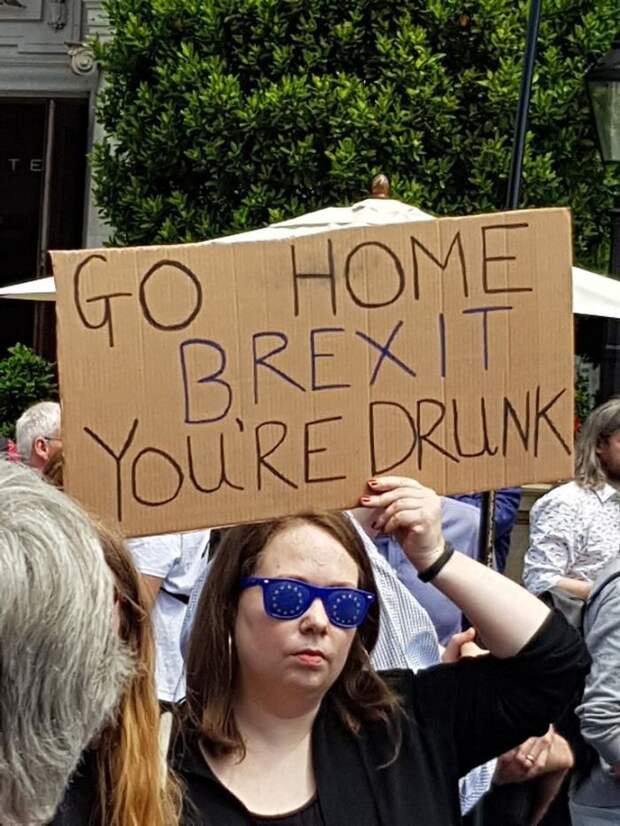 TE
GO HOME
BREXIT
YOU'RE DRUNK